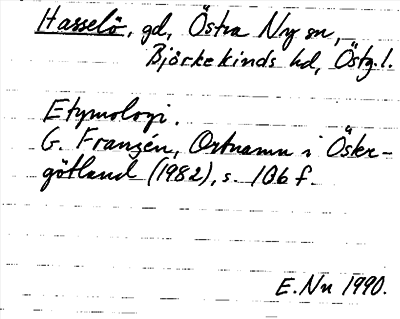 Hasselö, gd, Östra Ny sn,
Björkekinds hd, Östg. l.
Etymologi.
G. Franzén, Ortnamn i Öster-
götland (1982), s. 106 f.
E. Nn 1990.